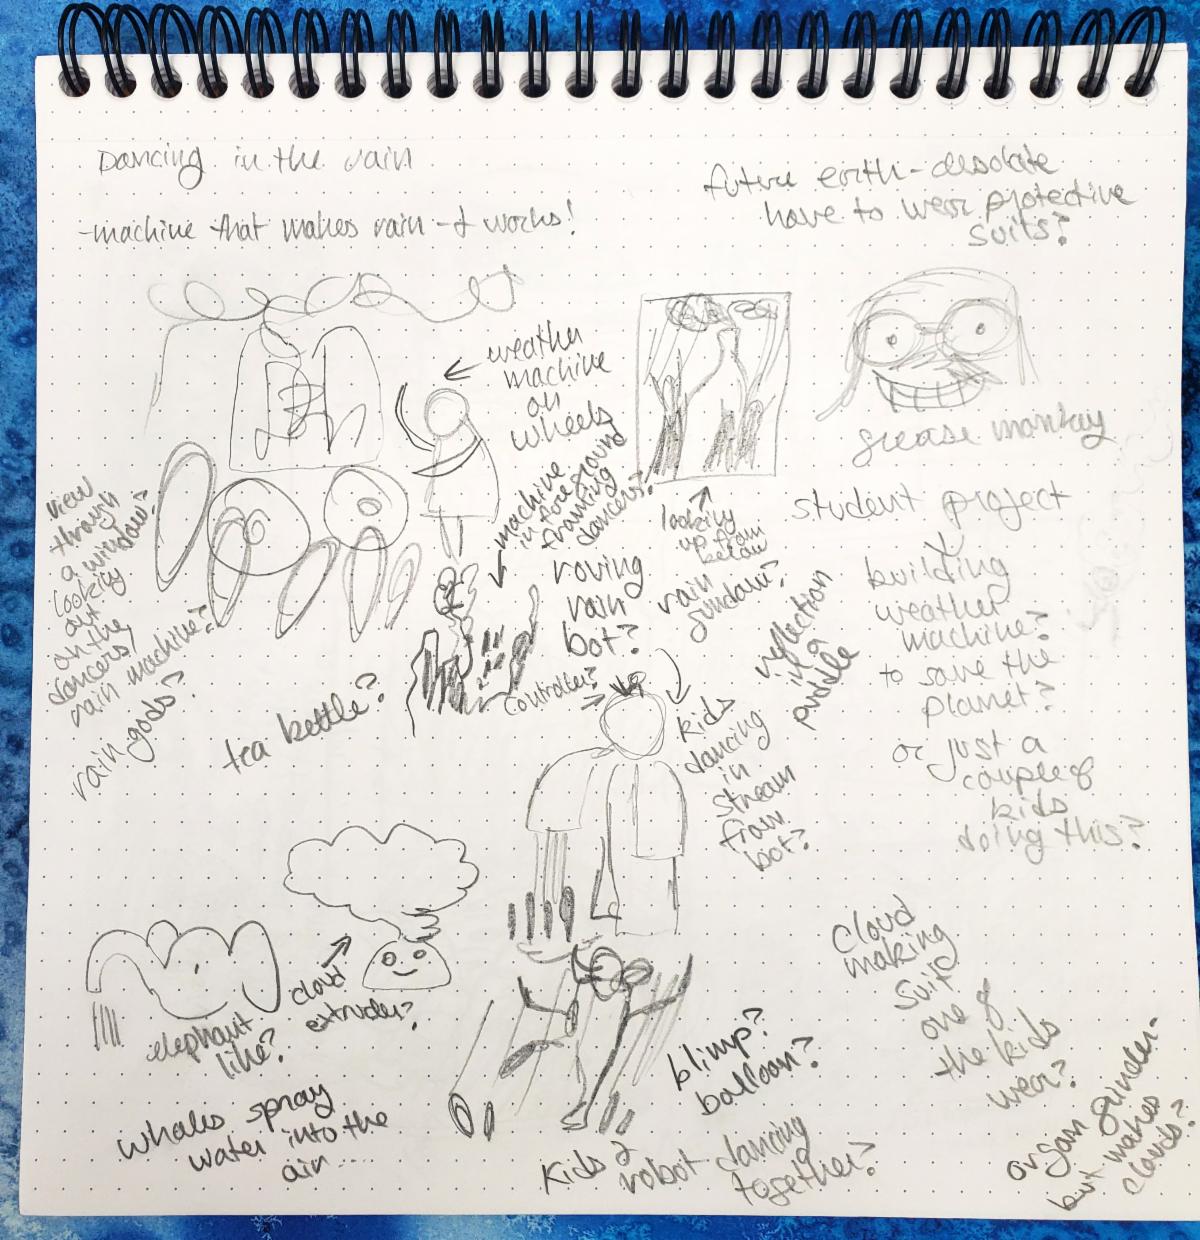 Dancing in the rain
-machine that makes rain - & works!
future earth - desolate
have to wear protective
suits?
weather
machine
on
wheels
grease monkey
machine
in foreground
framing
dancers?
looking
up from
below
view
through
a window?
looking
out
on the
dancers/
rain machine?
rain gods?
tea kettle?
roving
rain
bot?
controller?
rain
sundaw?
reflection
in a
puddle
kids
dancing
in
stream
from
bot?
student project
building
weather
machine?
to save the
planet?
or just a
couple of
kids
doing this?
cloud
extruder?
elephant
like?
whales spray
water into the
air...
blimp?
balloon?
Kids &
robot dancing
together?
cloud
making
suit
one of
the kids
wear?
organ grinder-
but makes
clouds?